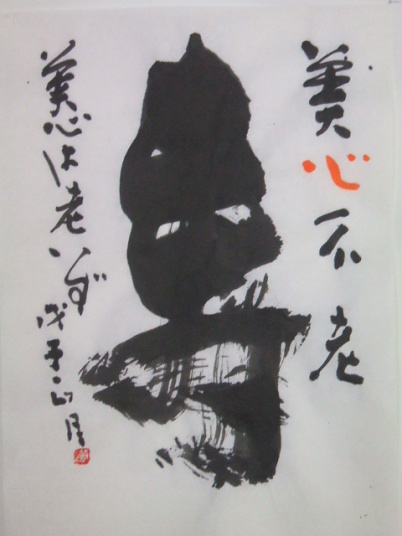 美心不老
美心は老いず
戊子正月